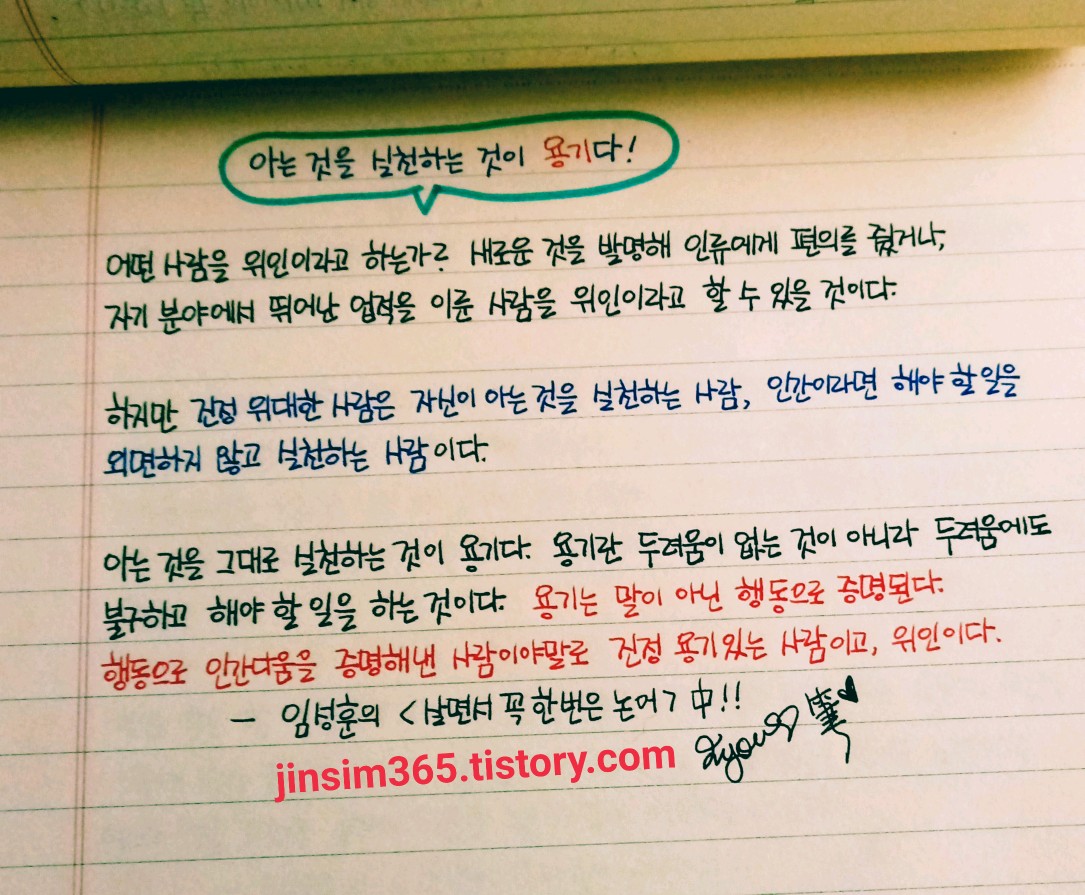 아는 것을 실천하는 것이 용기다!
어떤 사람을 위인이라고 하는가? 새로운 것을 발명해 인류에게 편의를 줬거나,
자기 분야에서 뛰어난 업적을 이룬 사람을 위인이라고 할 수 있을 것이다.
하지만 진정 위대한 사람은 자신이 아는 것을 실천하는 사람, 인간이라면 해야 할 일을
외면하지 않고 실천하는 사람이다.
아는 것을 그대로 실천하는 것이 용기다. 용기란 두려움이 없는 것이 아니라 두려움에도
불구하고 해야 할 일을 하는 것이다. 용기는 말이 아닌 행동으로 증명된다.
행동으로 인간다움을 증명해낸 사람이야말로 진정 용기있는 사람이고, 위인이다.
- 임성훈의 <살면서 꼭 한번은 논어> 中!!
jinsim365.tistory.com